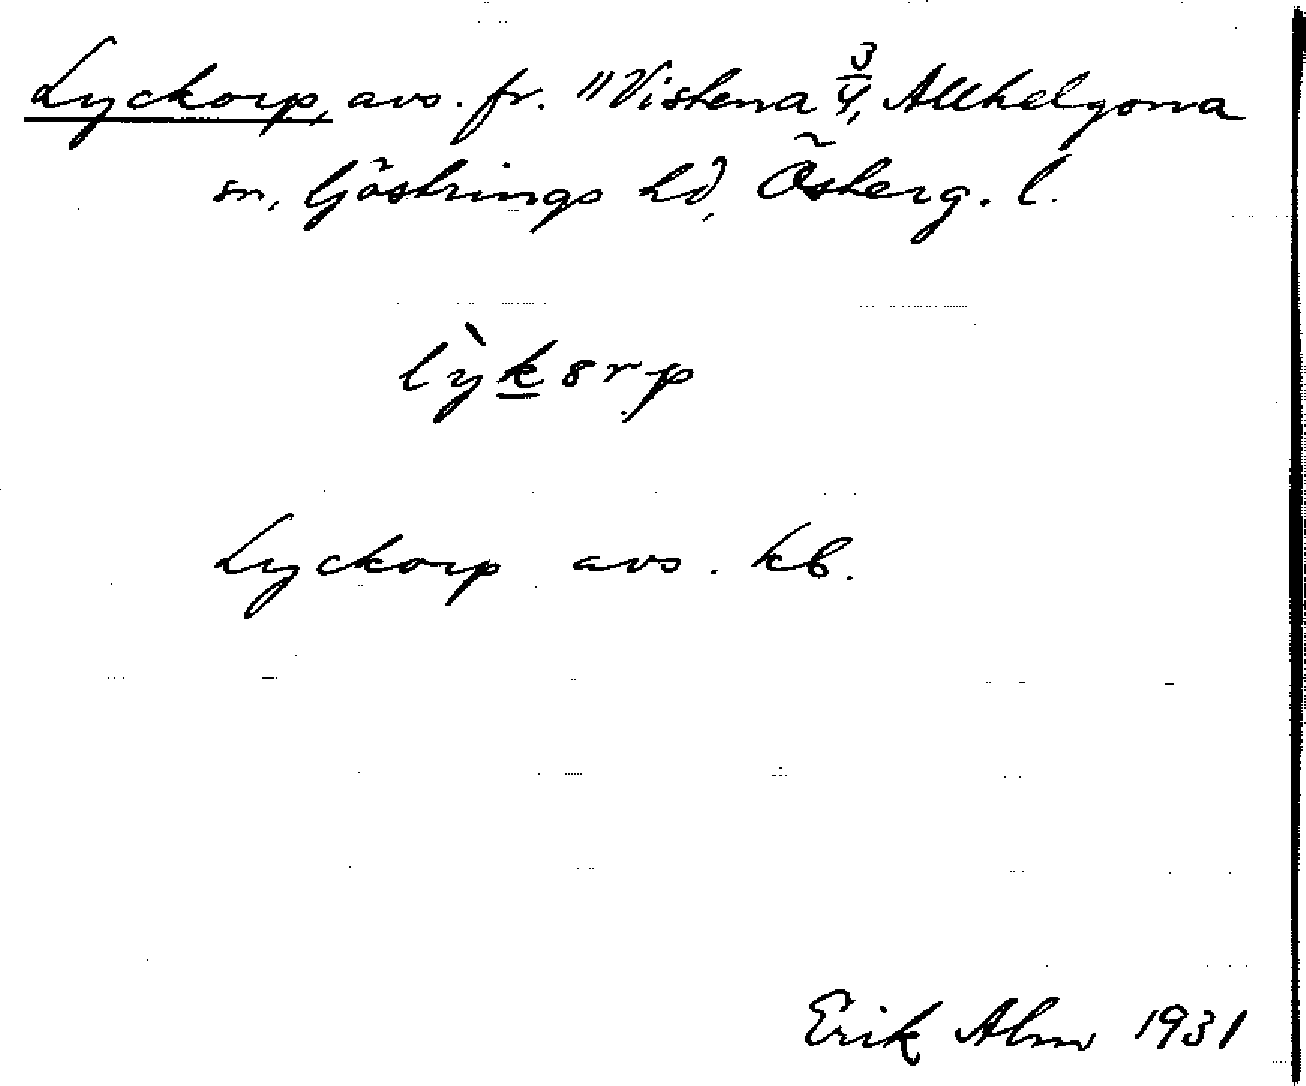 Lyckorp, avs. fr. "Vistena 3/4, Allhelgona
sn, Göstrings hd, Österg. l.
lỳk8rp
Lyckorp avs. kb.
Erik Alm 1931